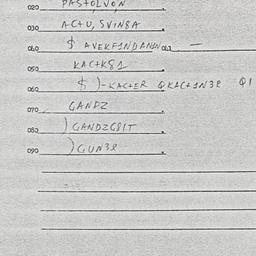 020 PAS+OLVON.
030 AC+U, SVINGA
040 $ AVEKF1NDANAN 041 —
050 KAC+KG1
060 $ )-KAC+ER QKAC+1N3R Q1
070 GANDZ
080 ) GANDZG8IT
090 ) GUN3R